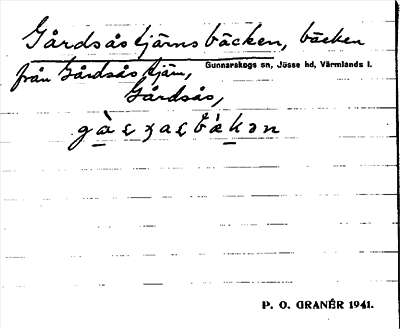 Gårdsåstjärnsbäcken, bäcken
från Gårdsåstjärn, Gunnarskogs sn, Jösse hd, Värmlands l.
Gårdsås,
P. O. GRANÉR 1941.